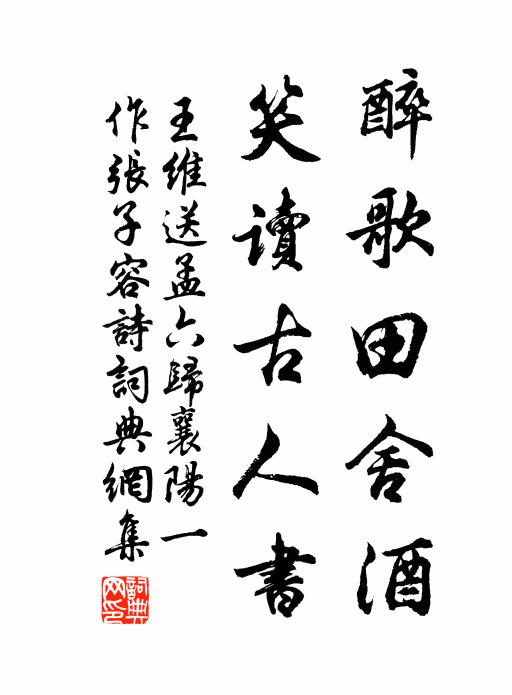 醉歌田舍酒
笑讀古人書
王維送孟六歸襄陽一
作張子容詩詞典網集
詞典網印